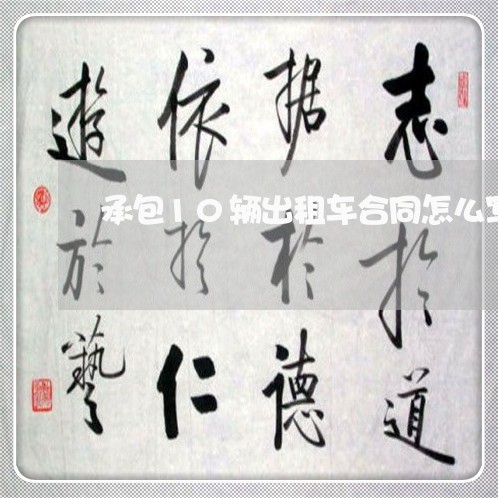 志於道
据於德
依於仁
遊於藝
承包10辆出租车合同怎么